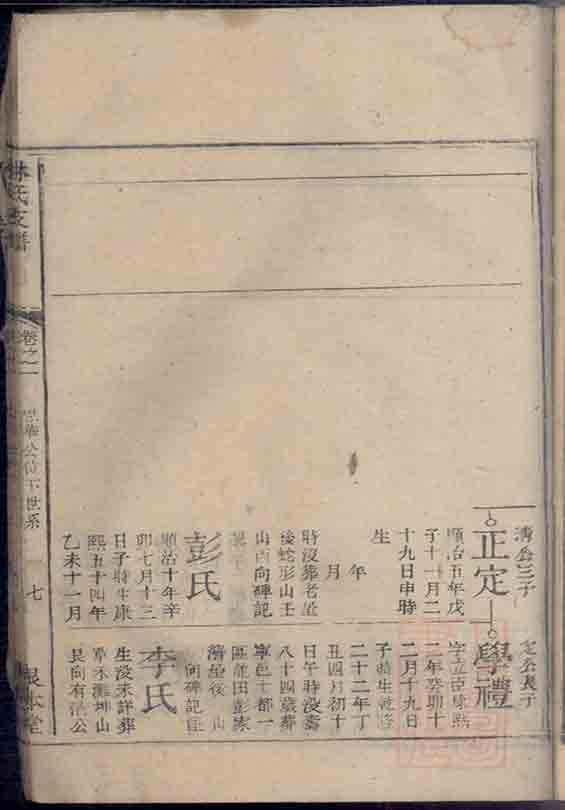 清公三子
正定
順治五年戊
子十一月二
十九日申時
生
年
月
時没葬老屋
後蛇形山壬
山丙向碑記
彭氏
順治十年辛
卯七月十三
日子時生康
熙五十四年
乙未十一月
定公長子
學禮
字立臣康熙
二年癸卯十
二月十九日
子時生乾隆
二十二年丁
丑四月初十
日午時没壽
八十四歲葬
寧邑七都一
區龍田彭家
灣屋後
向碑記
李氏
生没未詳葬
草木灘坤山
艮向有清公
林氏支譜
卷之一
公位下世系
七
根本堂